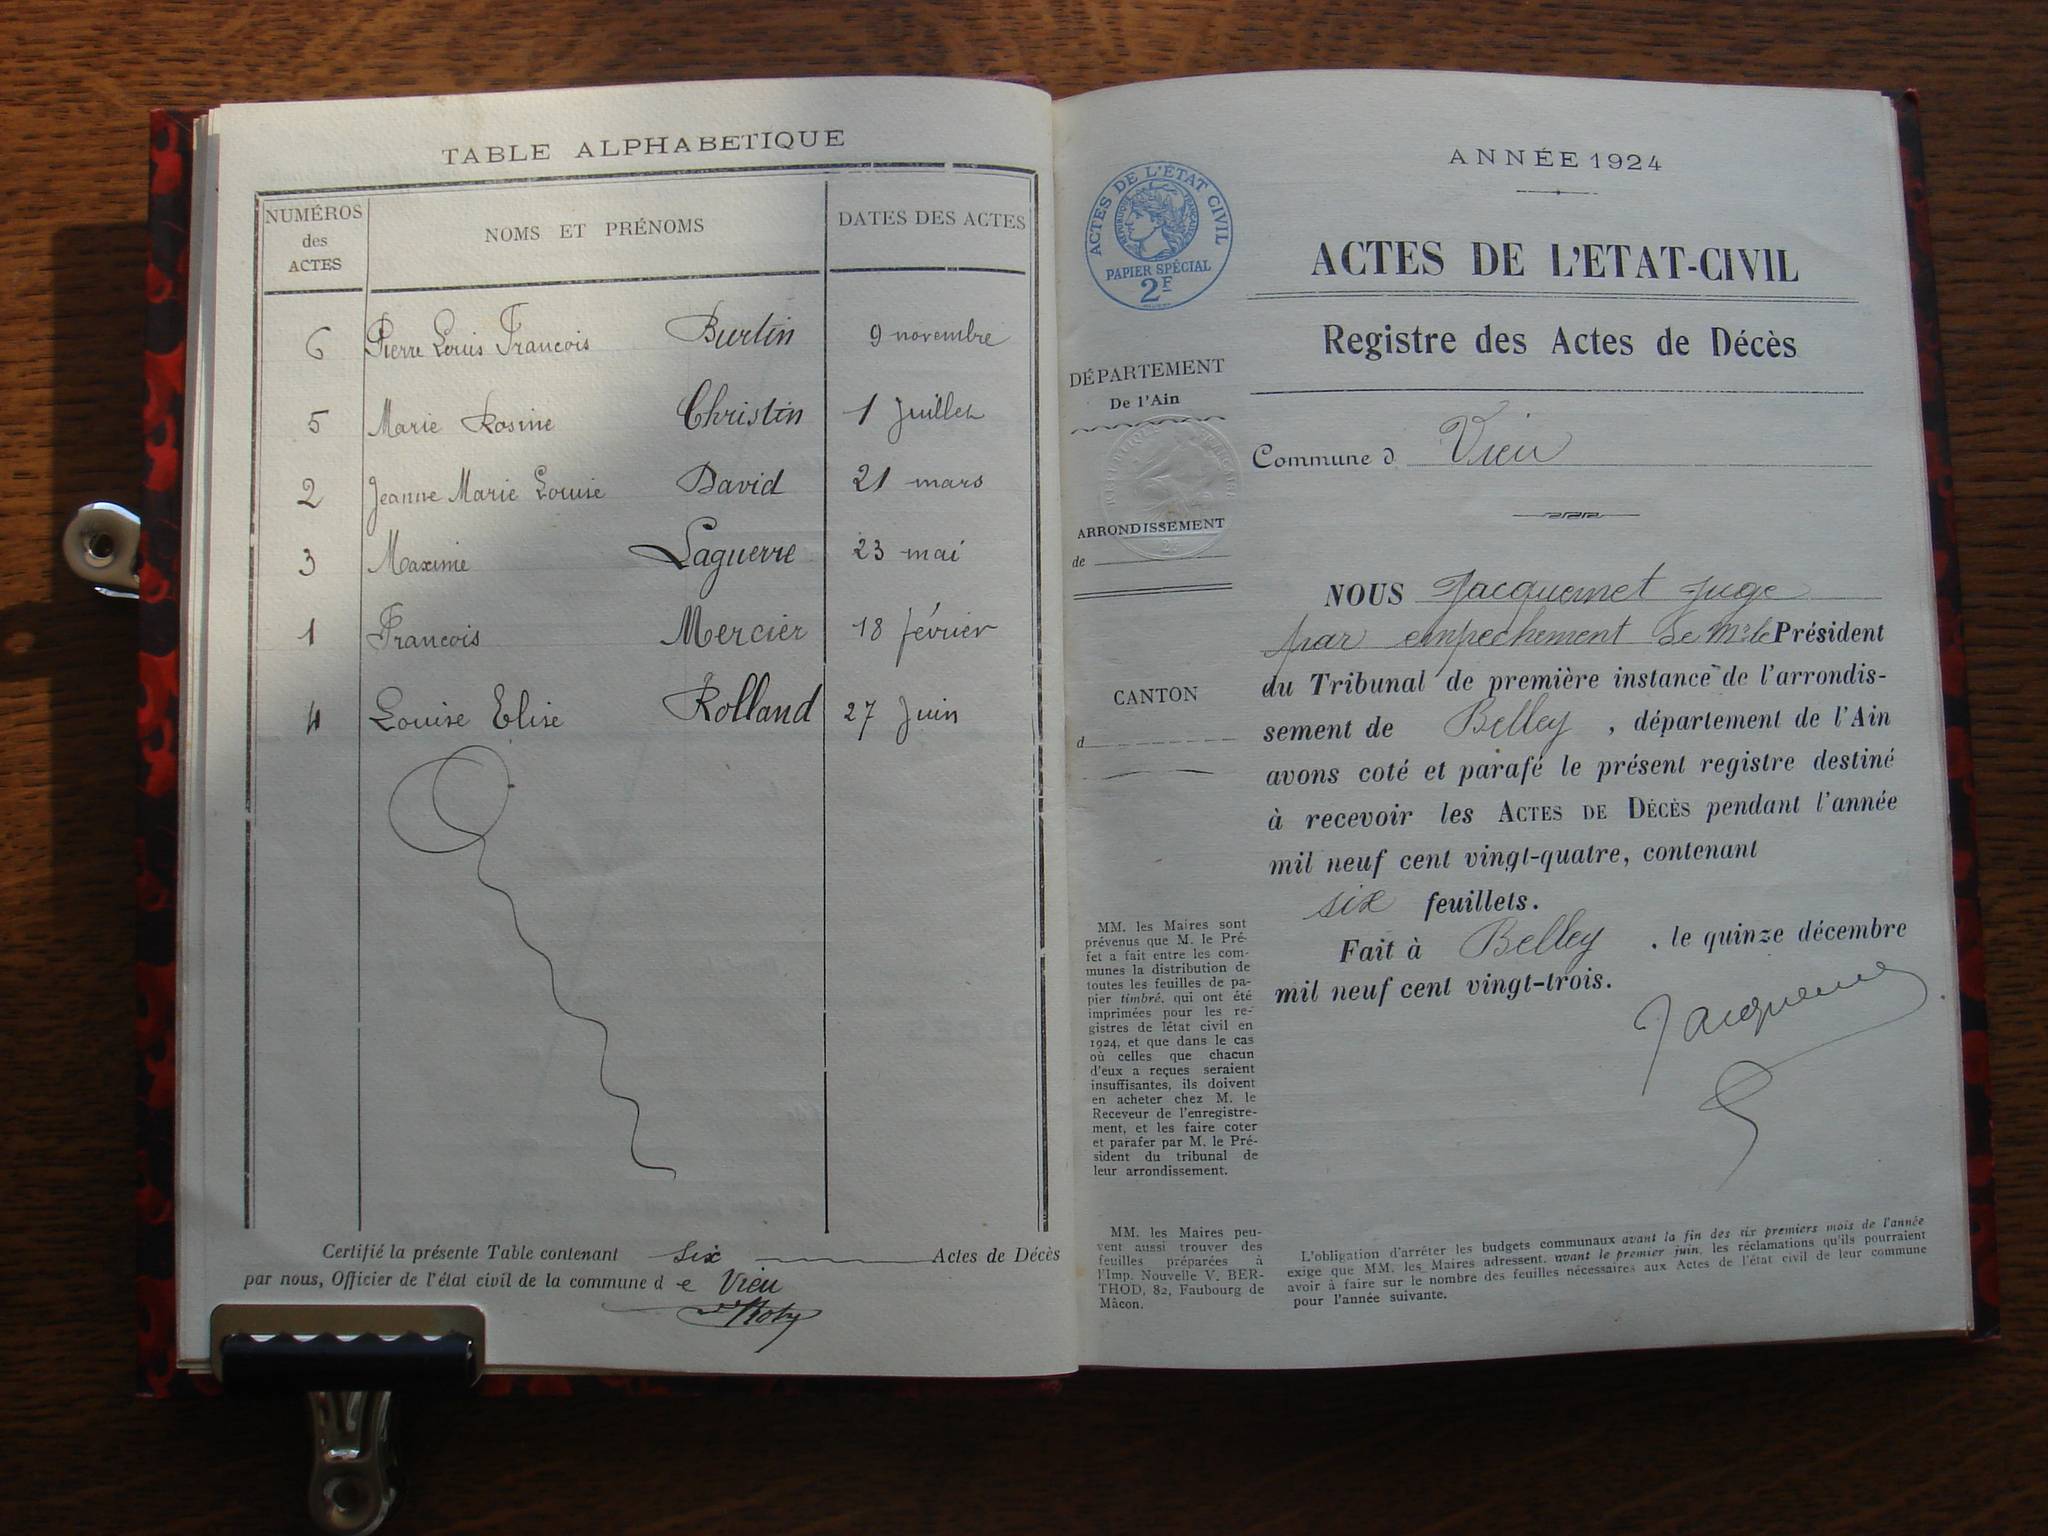 TABLE ALPHABETIQUE
NUMÉROS
des
ACTES
NOMS ET PRÉNOMS
DATES DES ACTES
6 Pierre Louis Francois Burtin 9 novembre
5 Marie Rosine Christin 1 Juillet
2 Jeanne Marie Louise David 21 mars
3 Maxime Laguerre 23 mai
1 Francois Mercier 18 février
4 Louise Elise Rolland 27 Juin
Certifié la présente Table contenant six Actes de Décès
par nous, Officier de l'état civil de la commune d e Vieu
ANNÉE 1924
ACTES DE L'ÉTAT CIVIL
RÉPUBLIQUE FRANÇAISE
PAPIER SPÉCIAL
2F
ACTES DE L'ETAT-CIVIL
Registre des Actes de Décès
DÉPARTEMENT
De l'Ain
Commune d Vieu
ARRONDISSEMENT
de
CANTON
d
NOUS Jacquemet Juge
par empechement de Mr le Président
du Tribunal de première instance de l'arrondis-
sement de Belley, département de l'Ain
avons coté et parafé le présent registre destiné
à recevoir les ACTES DE DÉCÈS pendant l'année
mil neuf cent vingt-quatre, contenant
six feuillets.
Fait à Belley, le quinze décembre
mil neuf cent vingt-trois.
Jacquemet
MM. les Maires sont
prévenus que M. le Pré-
fet a fait entre les com-
munes la distribution de
toutes les feuilles de pa-
pier timbré, qui ont été
imprimées pour les re-
gistres de létat civil en
1924, et que dans le cas
où celles que chacun
d'eux a reçues seraient
insuffisantes, ils doivent
en acheter chez M. le
Receveur de l'enregistre-
ment, et les faire coter
et parafer par M. le Pré-
sident du tribunal de
leur arrondissement.
MM. les Maires peu-
vent aussi trouver des
feuilles préparées à
l'Imp. Nouvelle V. BER-
THOD, 82, Faubourg de
Mâcon.
L'obligation d'arrêter les budgets communaux avant la fin des six premiers mois de l'année
exige que MM. les Maires adressent, avant le premier juin, les réclamations qu'ils pourraient
avoir à faire sur le nombre des feuilles nécessaires aux Actes de l'état civil de leur commune
pour l'année suivante.